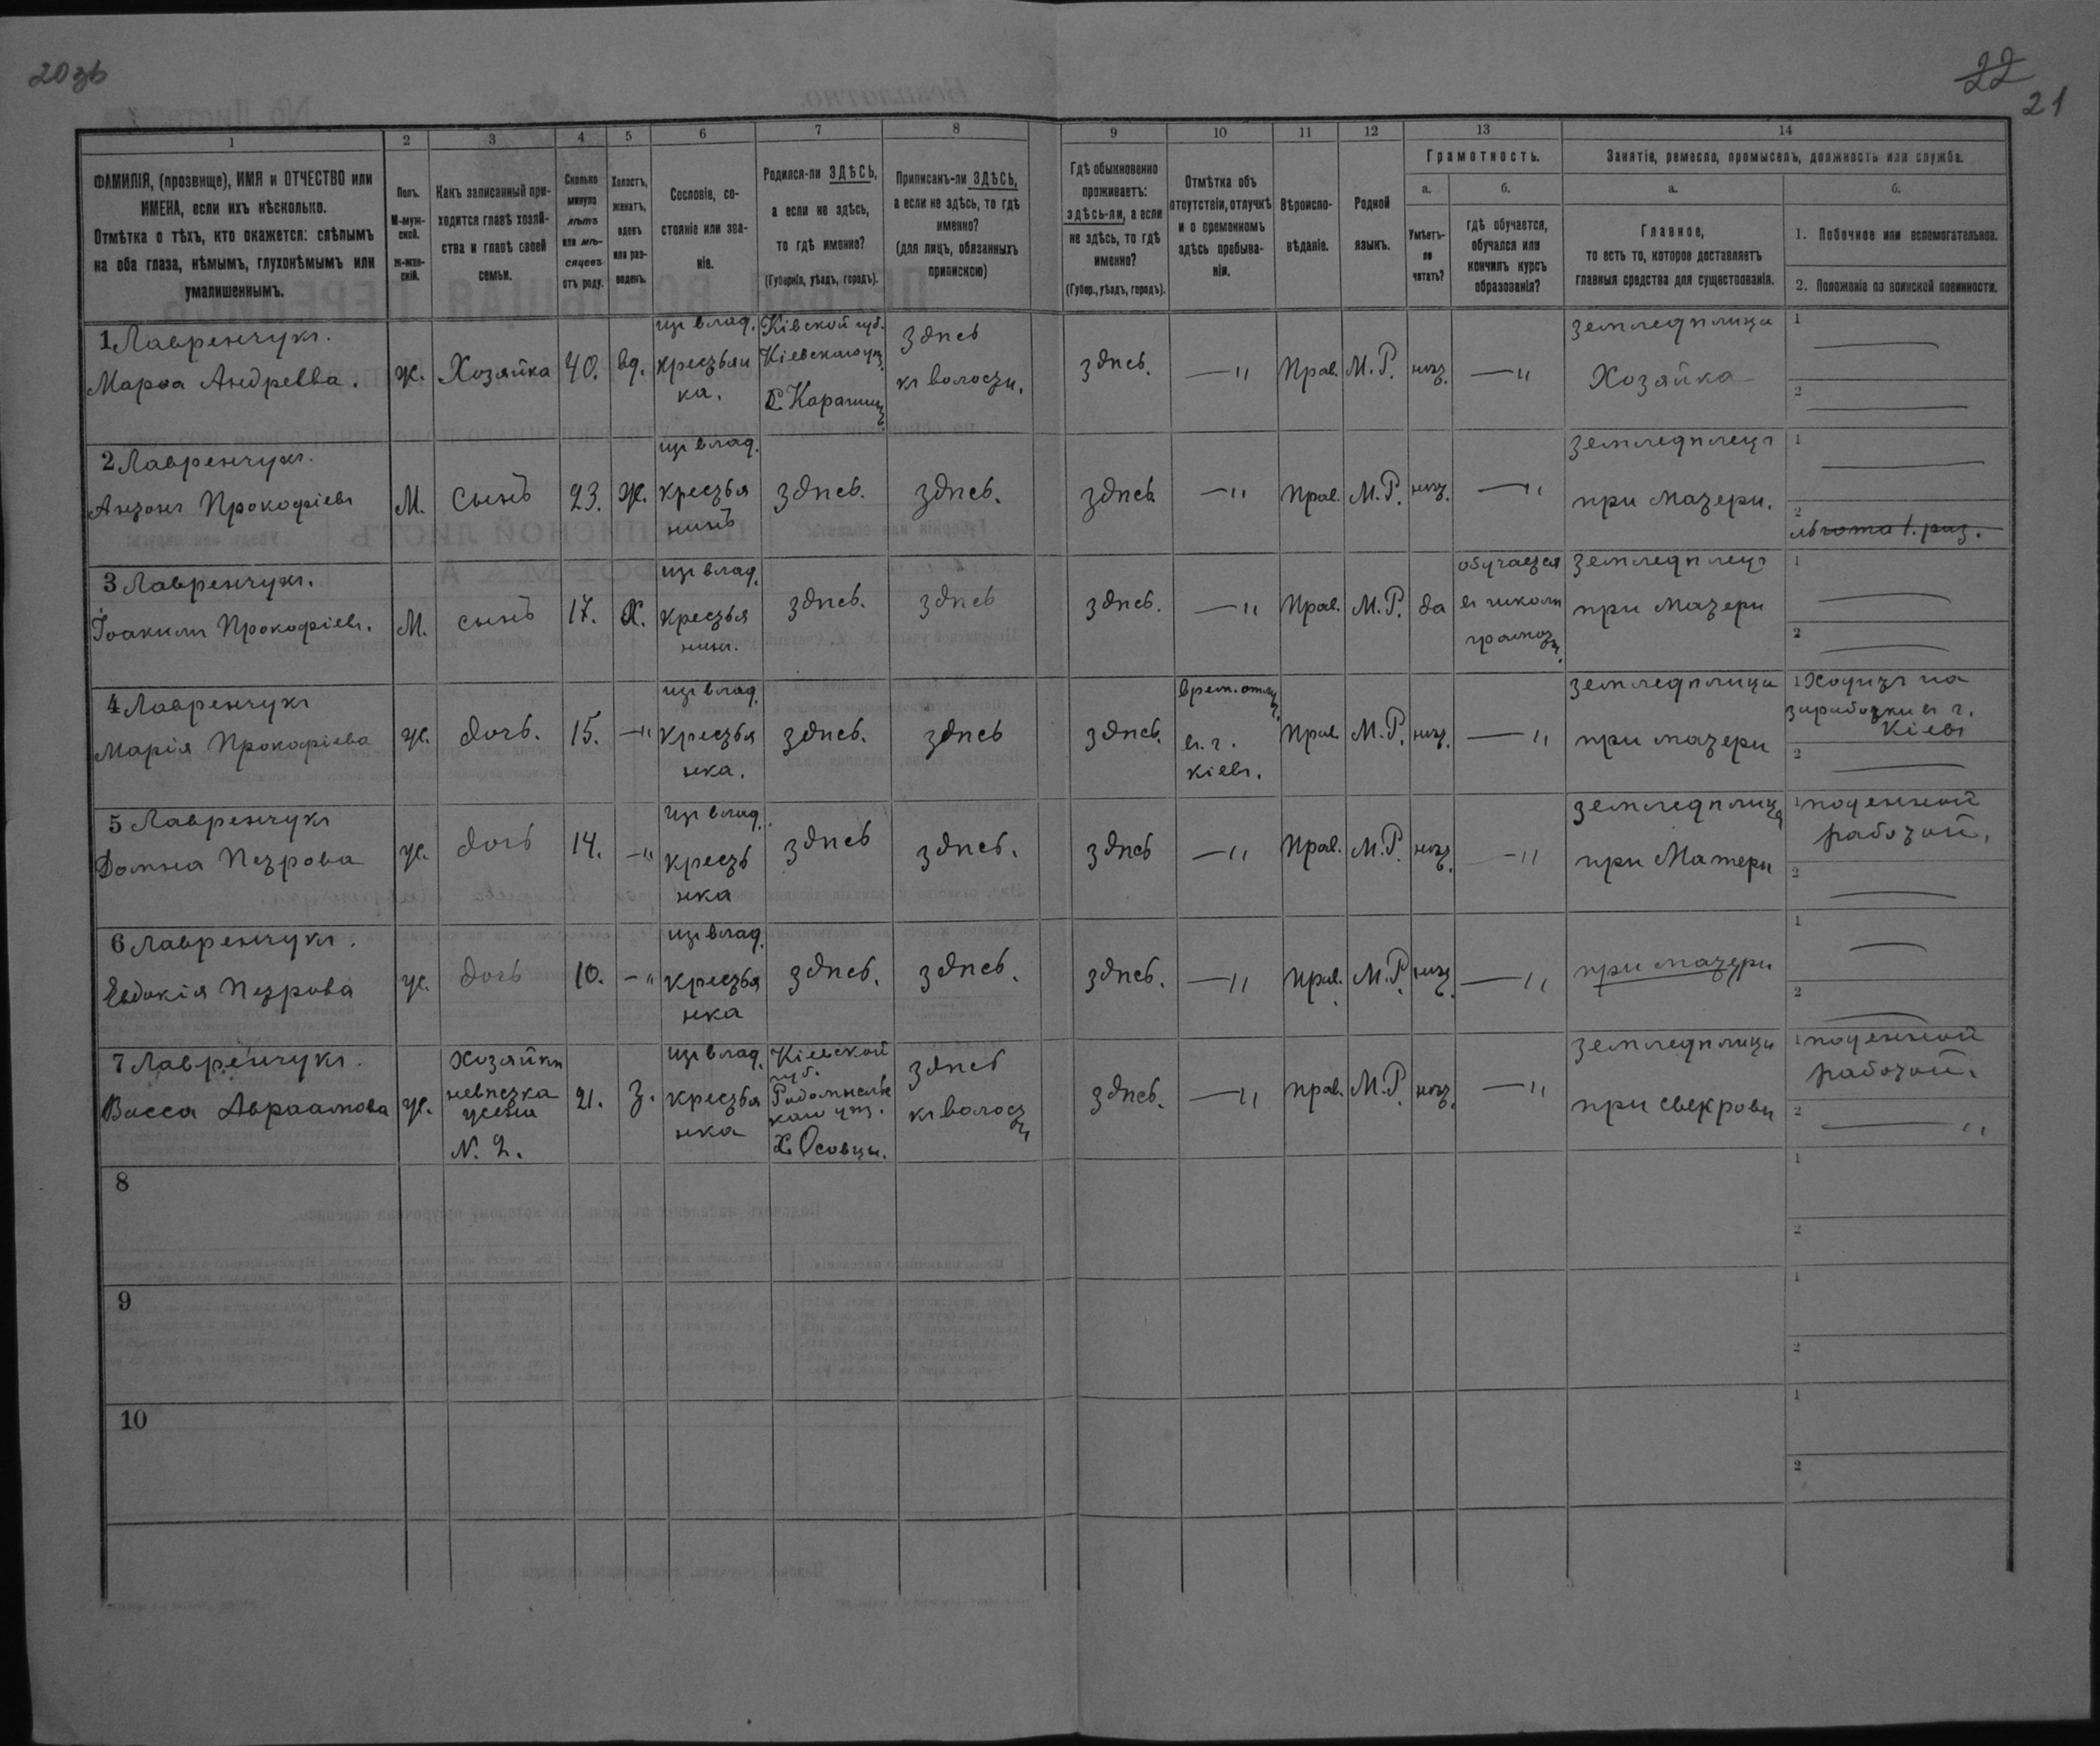 20 зв
22
21
1
2
3
4
5
6
7
8
9
10
11
12
13
14
ФАМИЛІЯ, (прозвище), ИМЯ и ОТЧЕСТВО или
ИМЕНА, если ихъ нѣсколько.
Отмѣтка о тѣхъ, кто окажется: слѣпымъ
на оба глаза, нѣмымъ, глухонѣмымъ или
умалишеннымъ.
Полъ.
М-муж-
ской.
ж-жен-
скій.
Какъ записанный при-
ходится главѣ хозяй-
ства и главѣ своей
семьи.
Сколько
минуло
лѣтъ
или мѣ-
сяцевъ
отъ роду.
Холостъ,
женатъ,
вдовъ
или раз-
веденъ.
Сословіе, со-
стояніе или зва-
ніе.
Родился-ли ЗДѢСЬ,
а если не здѣсь,
то гдѣ именно?
(Губернія, уѣздъ, городъ).
Приписанъ-ли ЗДѢСЬ,
а если не здѣсь, то гдѣ
именно?
(для лицъ, обязанныхъ
припискою)
Гдѣ обыкновенно
проживаетъ:
здѣсь-ли, а если
не здѣсь, то гдѣ
именно?
(Губер., уѣздъ, городъ).
Отмѣтка объ
отсутствіи, отлучкѣ
и о временномъ
здѣсь пребыва-
ніи.
Вѣроиспо-
вѣданіе.
Родной
языкъ.
Грамотность.
а.
Умѣетъ-
ли
читать?
б.
гдѣ обучается,
обучался или
кончилъ курсъ
образованія?
Занятіе, ремесло, промыселъ, должность или служба.
а.
Главное,
то есть то, которое доставляетъ
главныя средства для существованія.
б.
1. Побочное или вспомогательное.
2. Положеніе по воинской повинности.
1 Лавренчукъ.
Марѳа Андреева.
ж.
Хозяйка
40.
вд.
изъ влад.
крестьян
ка.
Кіевской губ.
Кіевскаго уѣз.
здѣсь
къ волости.
здѣсь.
—"
Прав.
М.Р.
нѣт.
—"
земледѣлица
Хозяйка
1
2
2 Лавренчукъ.
Антонъ Прокофіевъ
М.
сынъ
23.
ж.
изъ влад.
крестья
нинъ
здѣсь.
здѣсь.
здѣсь
—"
Прав.
М.Р.
нѣт.
—"
земледѣлецъ
при матери.
1
2
льгота 1. раз.
3 Лавренчукъ.
Іоакимъ Прокофіевъ.
М.
сынъ
17.
Х.
изъ влад.
крестья
нинъ.
здѣсь.
здѣсь
здѣсь.
—"
Прав.
М.Р.
да
обучается
въ школѣ
грамоты.
земледѣлецъ
при матери
1
2
4 Лавренчукъ
Марія Прокофіева
ж.
дочь.
15.
—"
изъ влад.
крестья
нка.
здѣсь.
здѣсь
здѣсь.
врем. отлуч.
въ г.
Кіевъ.
Прав.
М.Р.
нѣт.
—"
земледѣлица
при матери
1 Ходитъ на
заработки въ г.
Кіевъ
2
5 Лавренчукъ
Домна Петрова
ж.
дочь
14.
—"
изъ влад.
кресть
нка
здѣсь
здѣсь.
здѣсь
—"
Прав.
М.Р.
нѣт.
—"
земледѣлица
при Матери
1 поденной
работой.
2
6 Лавренчукъ.
Евдокія Петрова
ж.
дочь
10.
—"
изъ влад.
крестья
нка
здѣсь.
здѣсь.
здѣсь.
—"
прав.
М.Р.
нѣт.
—"
при матери
1
2
7 Лавренчукъ.
Васса Авраамова
ж.
хозяйки
невѣстка
жена
N. 2.
21.
З.
изъ влад.
крестья
нка
Кіевской
губ.
Радомысльс
каго уѣз.
Осовцы.
здѣсь
къ волости
здѣсь.
—"
прав.
М.Р.
нѣт.
—"
земледѣлица
при свекрови
1 поденной
работой.
2
—"
8
1
2
9
1
2
10
1
2